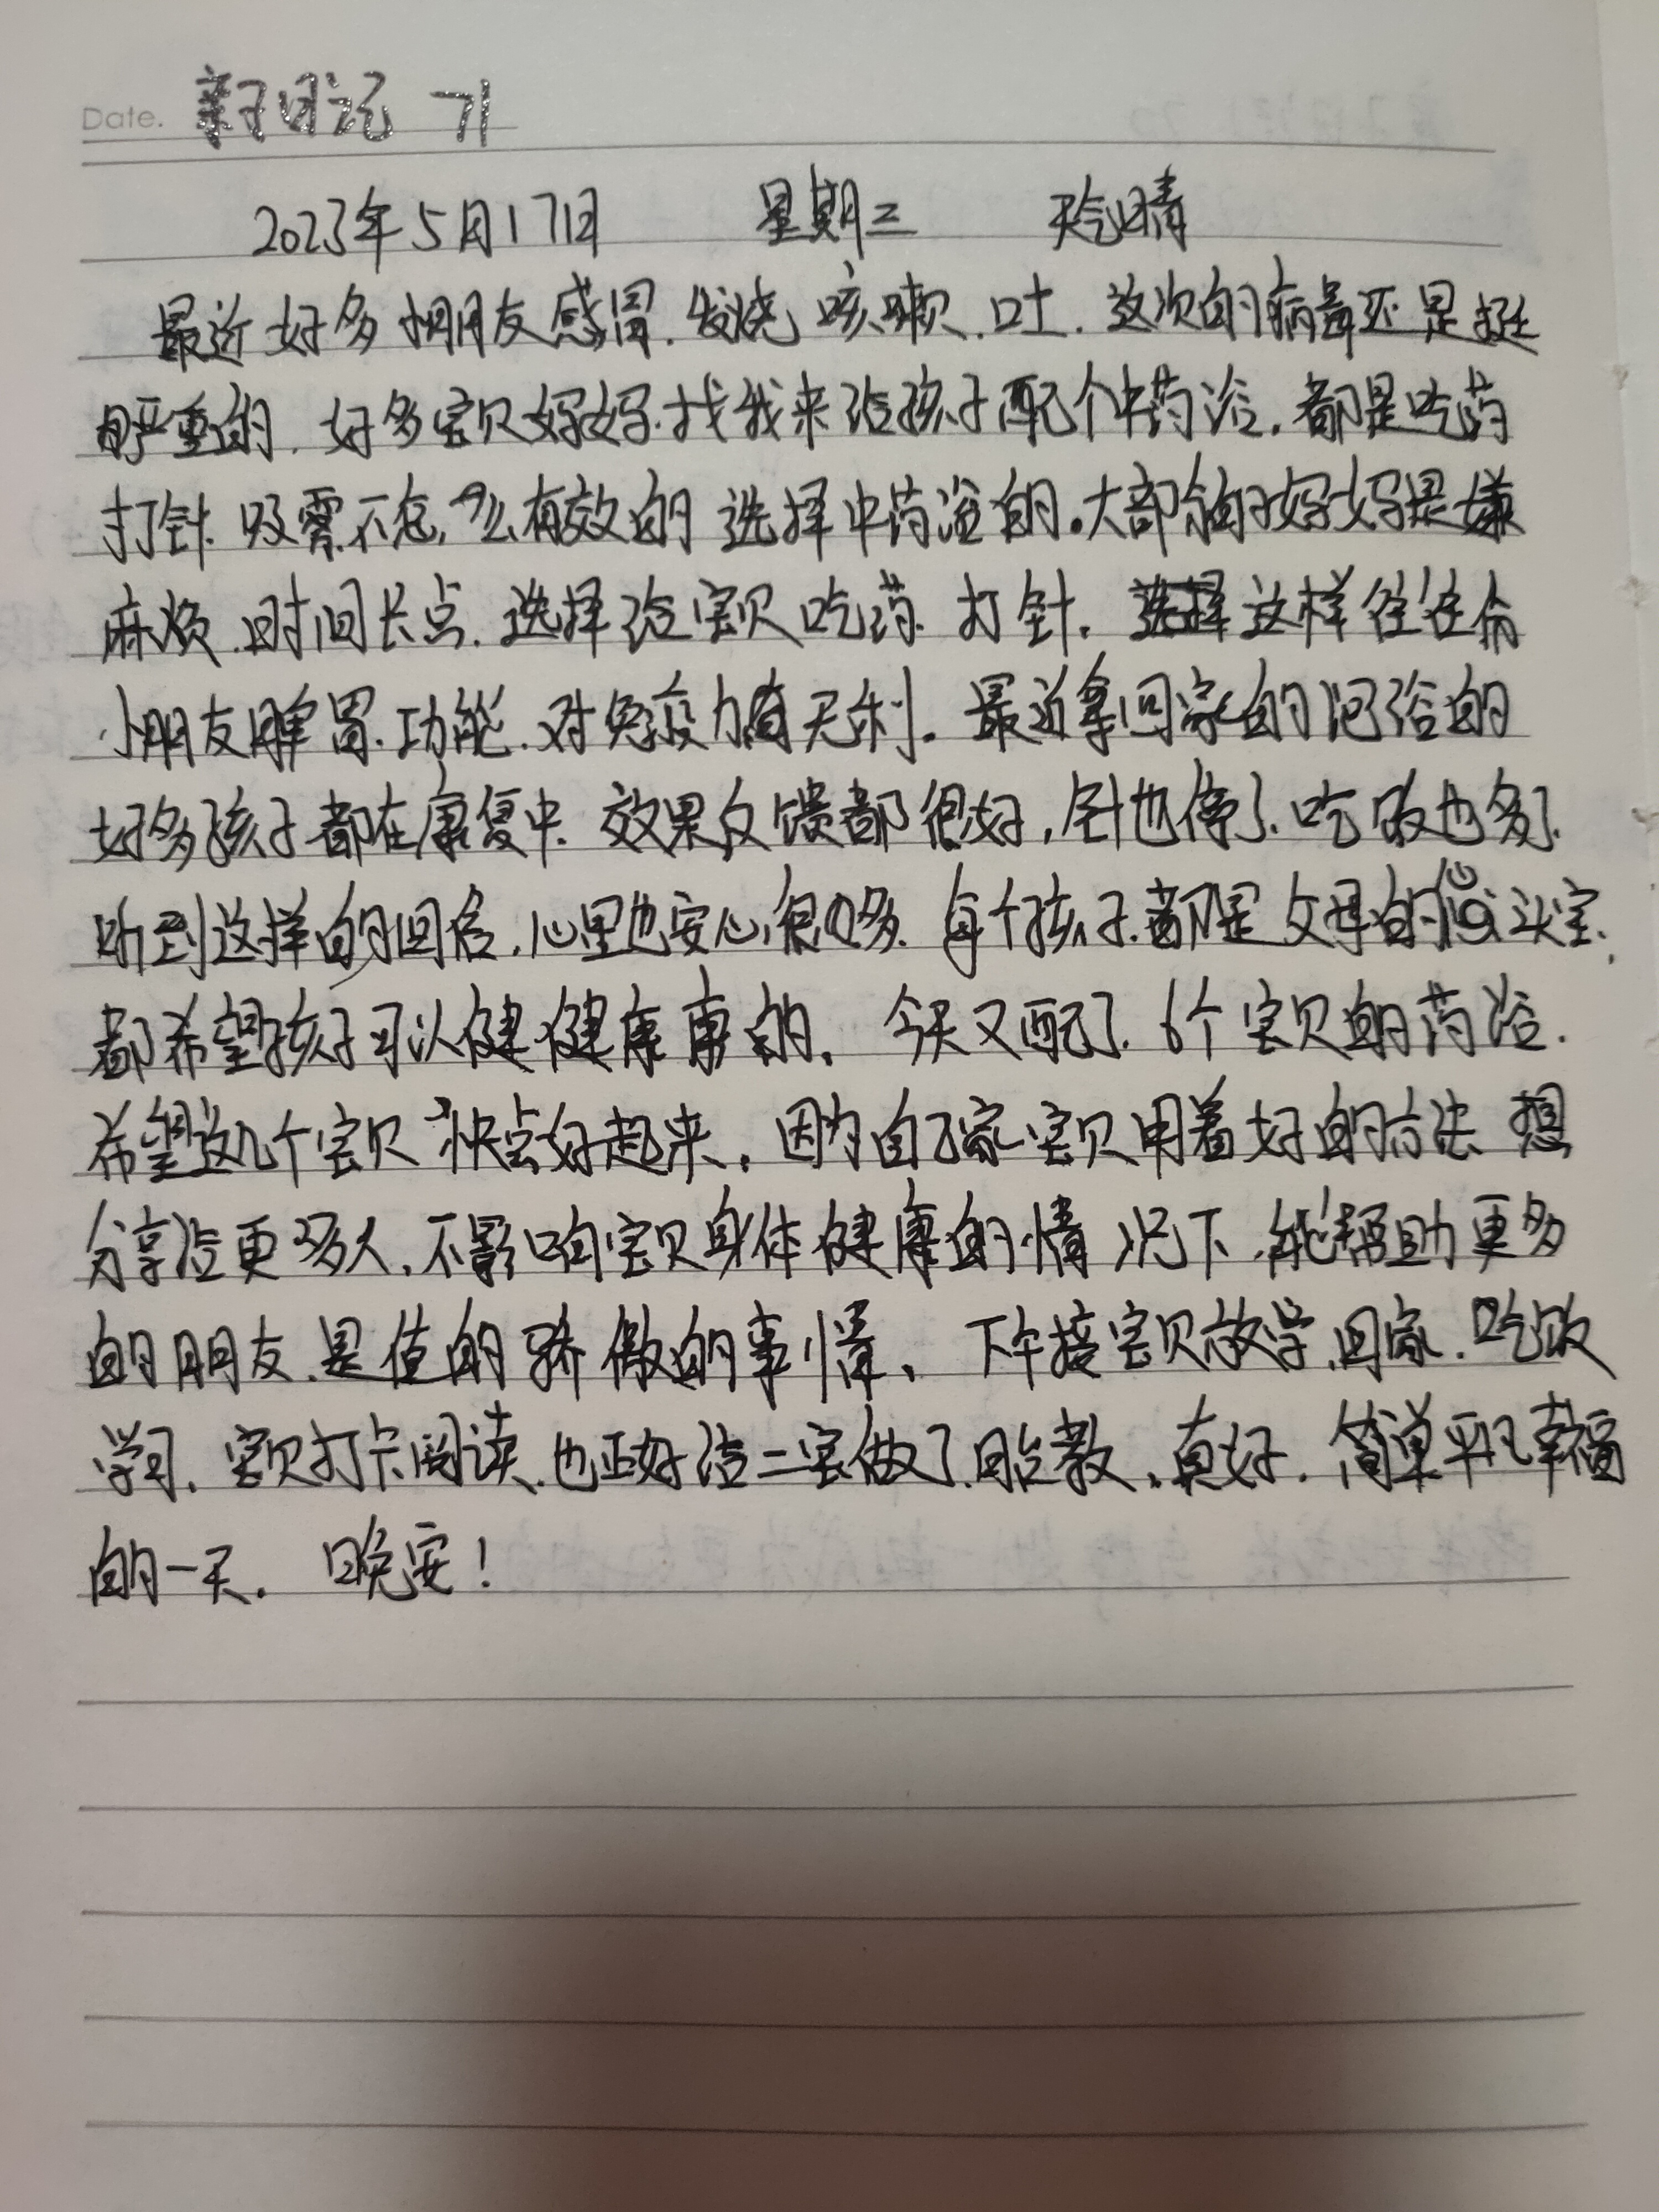 Date. 亲子日记 71
2023年5月17日 星期三 天气晴
最近好多小朋友感冒.发烧 咳嗽.吐.这次的病毒还是挺
严重的.好多宝贝妈妈.找我来给孩子配个中药浴.都是吃药
打针.吸雾不怎么有效的 选择中药浴的.大部分的妈妈是嫌
麻烦.时间长点.选择给宝贝吃药.打针.这样往往伤
小朋友脾胃.功能.对免疫力有无利.最近拿回家的泡浴的
好多孩子都在康复中.效果反馈都很好,针也停了.吃饭也多了.
听到这样的回答,心里也安心很多.每个孩子.都是父母的心头宝.
都希望孩子可以健健康康的.今天又配了.6个宝贝的药浴.
希望这几个宝贝 快点好起来.因为自己家宝贝用着好的方法 想
分享给更多人.不影响宝贝身体健康的情况下.能帮助更多
的朋友.是值的骄傲的事情.下午接宝贝放学.回家.吃饭
学习.宝贝打卡阅读.也正好给二宝做了.胎教.真好.简单平凡幸福
的一天.晚安!